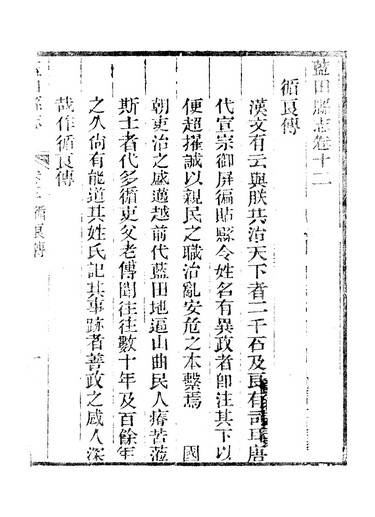 藍田縣志卷十二
循良傳
漢文有云與朕共治天下者二千石及良有司耳唐
代宣宗御屏徧貼縣令姓名有異政者卽注其下以
便超擢誠以親民之職治亂安危之本繫焉 國
朝吏治之盛邁越前代藍田地逼山曲民人瘠苦蒞
斯士者代多循吏父老傳聞往往數十年及百餘年
之久尙有能道其姓氏記其事跡者善政之感人深
哉作循良傳
循良傳 一